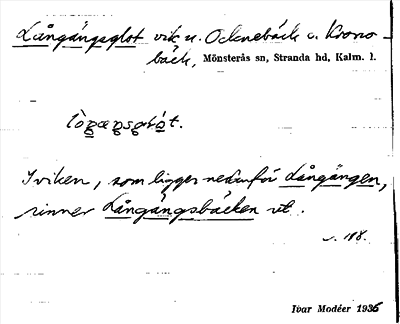 Långängsglot vik u. Oknebäck o. Krono-
bäck, Mönsterås sn, Stranda hd, Kalm. l.
I viken, som ligger nedanför Långängen,
rinner Långängsbäcken ut.
s. 108.
Ivar Modéer 1936